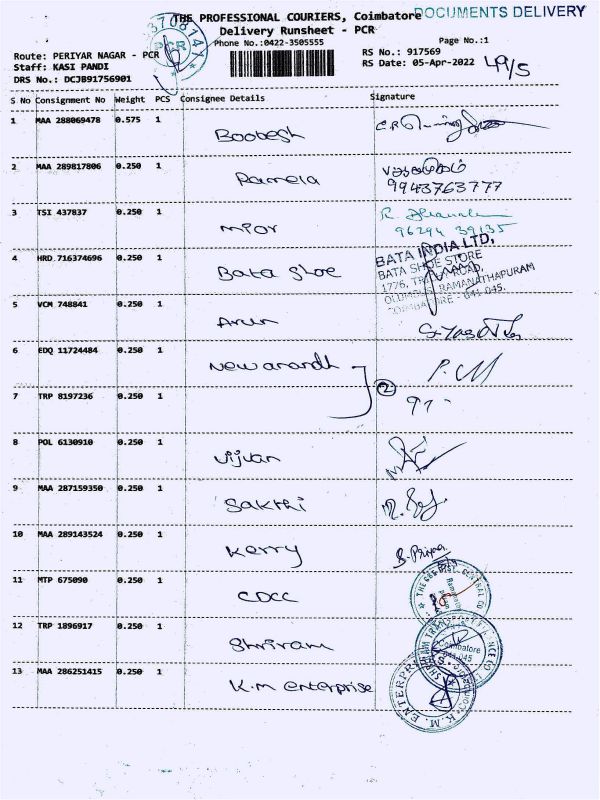 THE PROFESSIONAL COURIERS, Coimbatore
DOCUMENTS DELIVERY
Delivery Runsheet - PCR
Phone No.:0422-3505555
Page No.:1
Route: PERIYAR NAGAR - PCR
RS No.: 917569
Staff: KASI PANDI
RS Date: 05-Apr-2022
49/5
DRS No.: DCJB91756901
3708141
PCR
S No Consignment No Weight PCS Consignee Details Signature
1 MAA 288069478 0.575 1 Boobesh
2 MAA 289817806 0.250 1 Ramela
9943763777
3 TSI 437837 0.250 1 mior
96294 39135
4 HRD 716374696 0.250 1 Bata Shoe
BATA INDIA LTD,
BATA SHOE STORE
1776, ROAD,
RAMANATHAPURAM
COIMBATORE - 641 045.
5 VCM 748841 0.250 1 Arun
6 EDQ 11724484 0.250 1 New anandh
2
7 TRP 8197236 0.250 1
8 POL 6130910 0.250 1 Vijyan
9 MAA 287159350 0.250 1 Sakthi
10 MAA 289143524 0.250 1 Kerry B. Priya
11 MTP 675090 0.250 1 CDCC
12 TRP 1896917 0.250 1 Shriram
Coimbatore
641 045
13 MAA 286251415 0.250 1 K.m enterprise
K. M. ENTERPRI